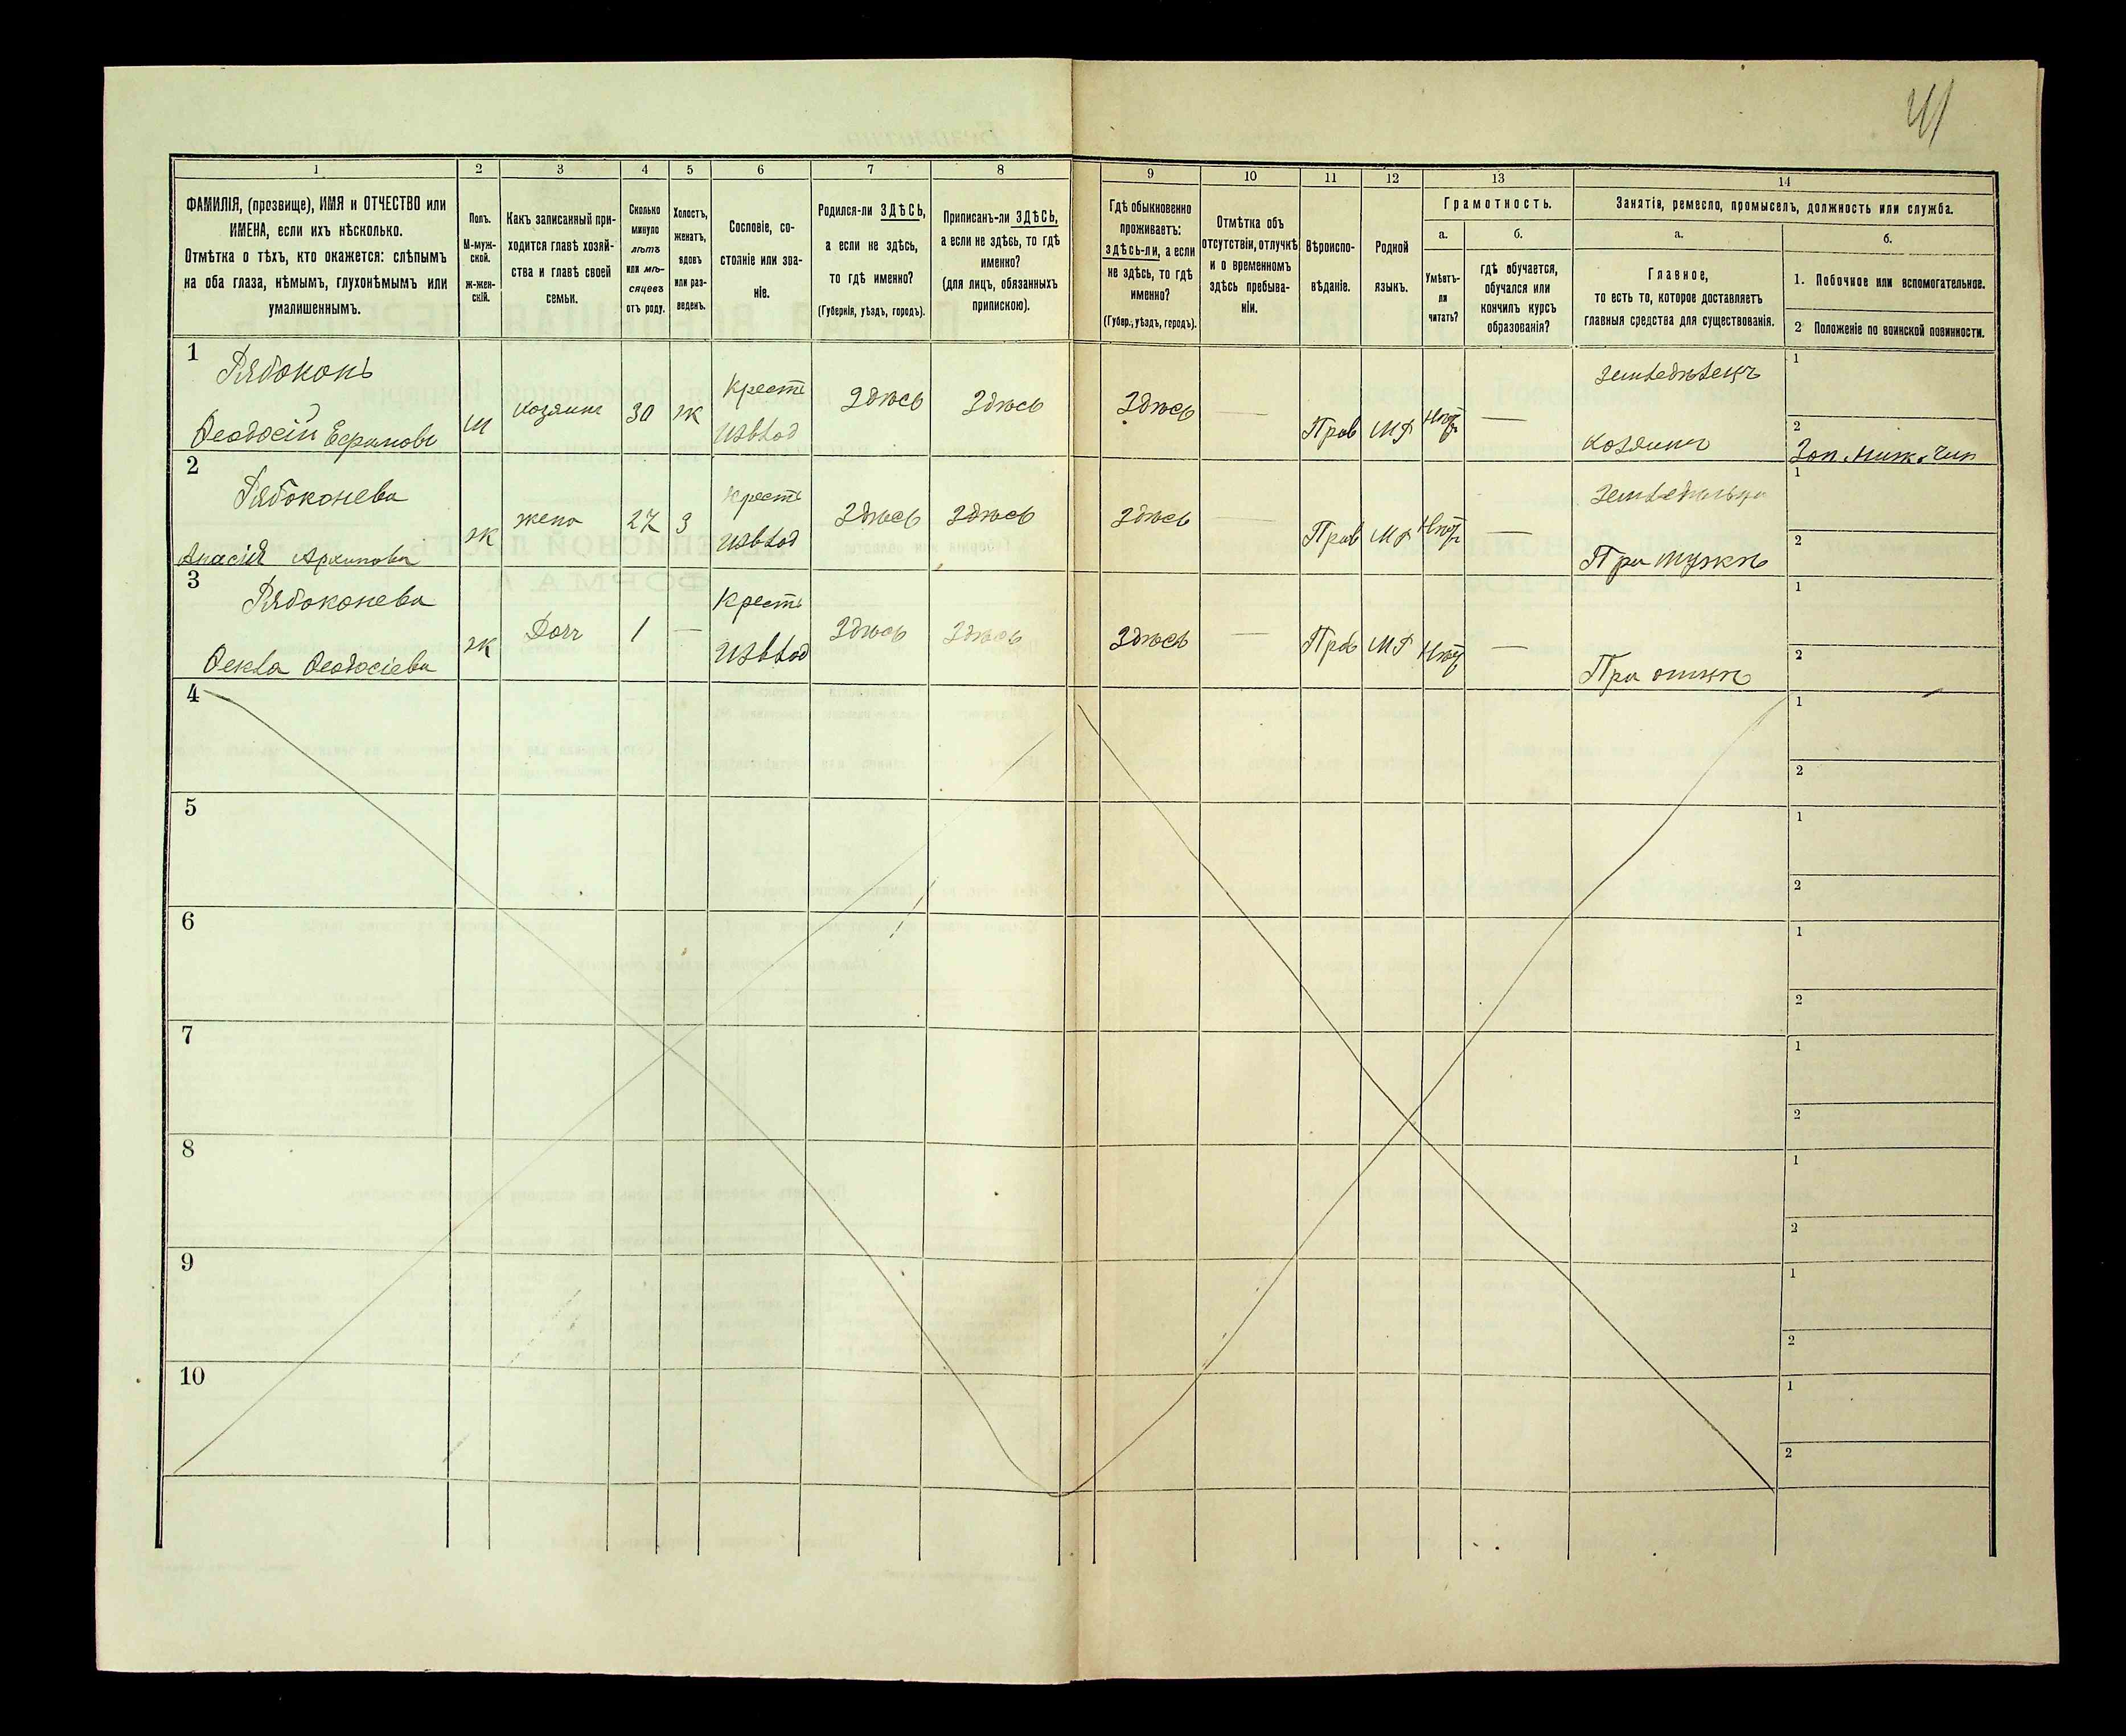 41
1 2 3 4 5 6 7 8 9 10 11 12 13 14
ФАМИЛІЯ, (прозвище), ИМЯ и ОТЧЕСТВО или
ИМЕНА, если ихъ нѣсколько.
Отмѣтка о тѣхъ, кто окажется: слѣпымъ
на оба глаза, нѣмымъ, глухонѣмымъ или
умалишеннымъ.
Полъ.
М-муж-
ской.
Ж-жен-
скій.
Какъ записанный при-
ходится главѣ хозяй-
ства и главѣ своей
семьи.
Сколько
минуло
лѣтъ
или мѣ-
сяцевъ
отъ роду.
Холостъ,
женатъ,
вдовъ
или раз-
веденъ.
Сословіе, со-
стояніе или зва-
ніе.
Родился-ли ЗДѢСЬ,
а если не здѣсь,
то гдѣ именно?
(Губернія, уѣздъ, городъ).
Приписанъ-ли ЗДѢСЬ,
а если не здѣсь, то гдѣ
именно?
(для лицъ, обязанныхъ
припискою).
Гдѣ обыкновенно
проживаетъ:
здѣсь-ли, а если
не здѣсь, то гдѣ
именно?
(Губер., уѣздъ, городъ).
Отмѣтка объ
отсутствіи, отлучкѣ
и о временномъ
здѣсь пребыва-
ніи.
Вѣроиспо-
вѣданіе.
Родной
языкъ.
Грамотность.
а.
Умѣетъ-
ли
читать?
б.
гдѣ обучается,
обучался или
кончилъ курсъ
образованія?
Занятія, ремесло, промыселъ, должность или служба.
а.
Главное,
то есть то, которое доставляетъ
главныя средства для существованія.
б.
1. Побочное или вспомогательное.
2 Положеніе по воинской повинности.
1 Рябоконь
Крест Земледѣлецъ 1
Феодосій Ефимовъ м хозяинъ 30 ж Здѣсь Здѣсь Здѣсь — Прав —
Хозяинъ 2 Зап. ниж. чин
2 Рябоконева
Крест 1
жена 27 з Здѣсь Здѣсь Здѣсь — Прав —
Архипова ж При мужѣ 2
3 Рябоконева
Крест 1
ж Доч 1 — Здѣсь Здѣсь Здѣсь — Прав —
Феодосіева При отцѣ 2
4 1
2
5 1
2
6 1
2
7 1
2
8 1
2
9 1
2
10 1
2